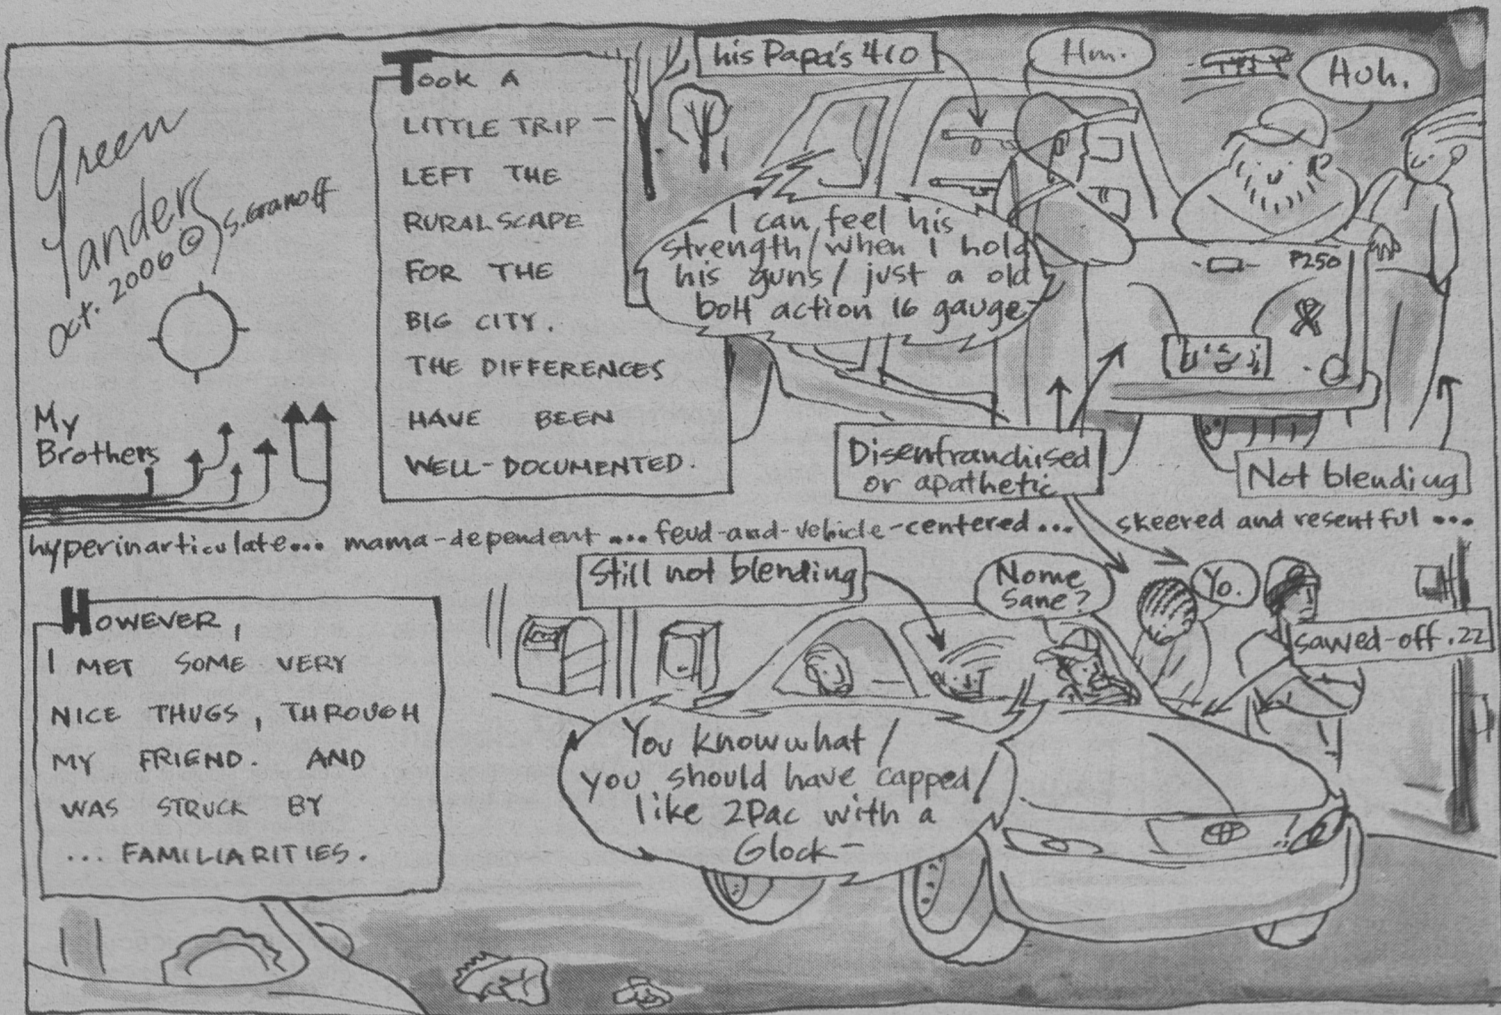 Green
Yanders
oct. 2006 © S. Granoff
My
Brothers
TOOK A
LITTLE TRIP—
LEFT THE
RURALSCAPE
FOR THE
BIG CITY.
THE DIFFERENCES
HAVE BEEN
WELL-DOCUMENTED.
his Papa's 410
Hm.
Huh.
I can feel his
strength/when I hold
his guns/ just a old
bolt action 16 gauge—
P250
Disenfranchised
or apathetic
Not blending
hyperinarticulate... mama-dependent ... feud-and-vehicle-centered... skeered and resentful ...
HOWEVER,
I MET SOME VERY
NICE THUGS, THROUGH
MY FRIEND. AND
WAS STRUCK BY
... FAMILIARITIES.
Still not blending
Nome
Sane?
Yo.
sawed-off .22
You knowwhat/
you should have capped/
like 2Pac with a
Glock—